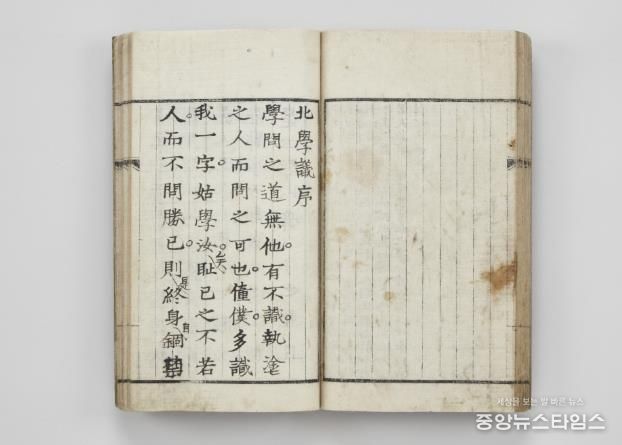 北學議序
學問之道無他有不識執塗
之人而問之可也僮僕多識
我一字姑學汝矣恥己之不若
人而不問勝己則是終身自錮
세상을 보는 발 바른 뉴스
중앙뉴스타임스